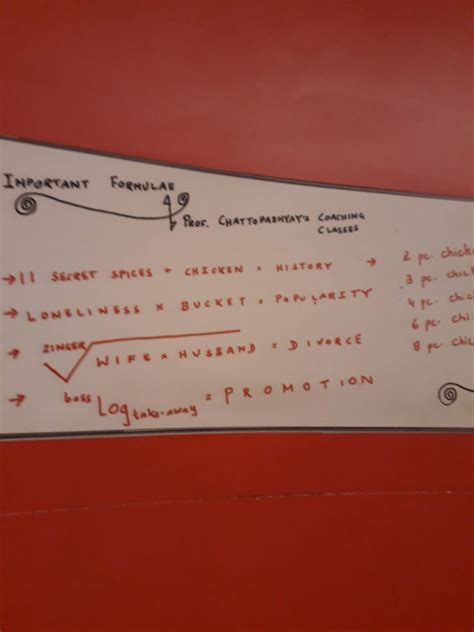 IMPORTANT FORMULAE
PROF. CHATTOPADHYAY'S COACHING
CLASSES
→ 11 SECRET SPICES + CHICKEN = HISTORY →
→ LONELINESS × BUCKET = POPULARITY
→ ZINGER√WIFE × HUSBAND = DIVORCE
→ boss Log take-away = PROMOTION
2 pc. chick
3 pc. chick
4 pc. chic
6 pc. chic
8 pc. chic